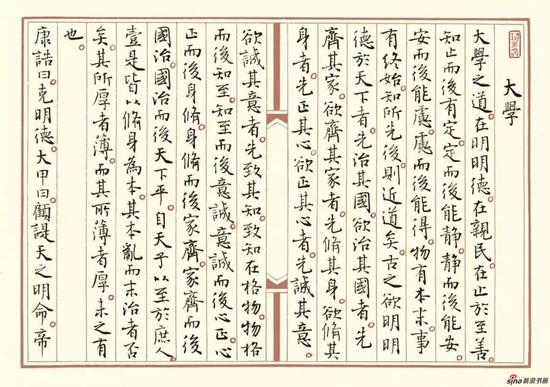 大學
大學之道在明明德在親民在止於至善
知止而後有定定而後能靜靜而後能安
安而後能慮慮而後能得物有本末事
有終始知所先後則近道矣古之欲明明
德於天下者先治其國欲治其國者先
齊其家欲齊其家者先脩其身欲脩其
身者先正其心欲正其心者先誠其意
欲誠其意者先致其知致知在格物物格
而後知至知至而後意誠意誠而後心正心
正而後身脩身脩而後家齊家齊而後
國治國治而後天下平自天子以至於庶人
壹是皆以脩身為本其本亂而末治者否
矣其所厚者薄而其所薄者厚未之有
也
康誥曰克明德大甲曰顧諟天之明命帝
sina新浪书画